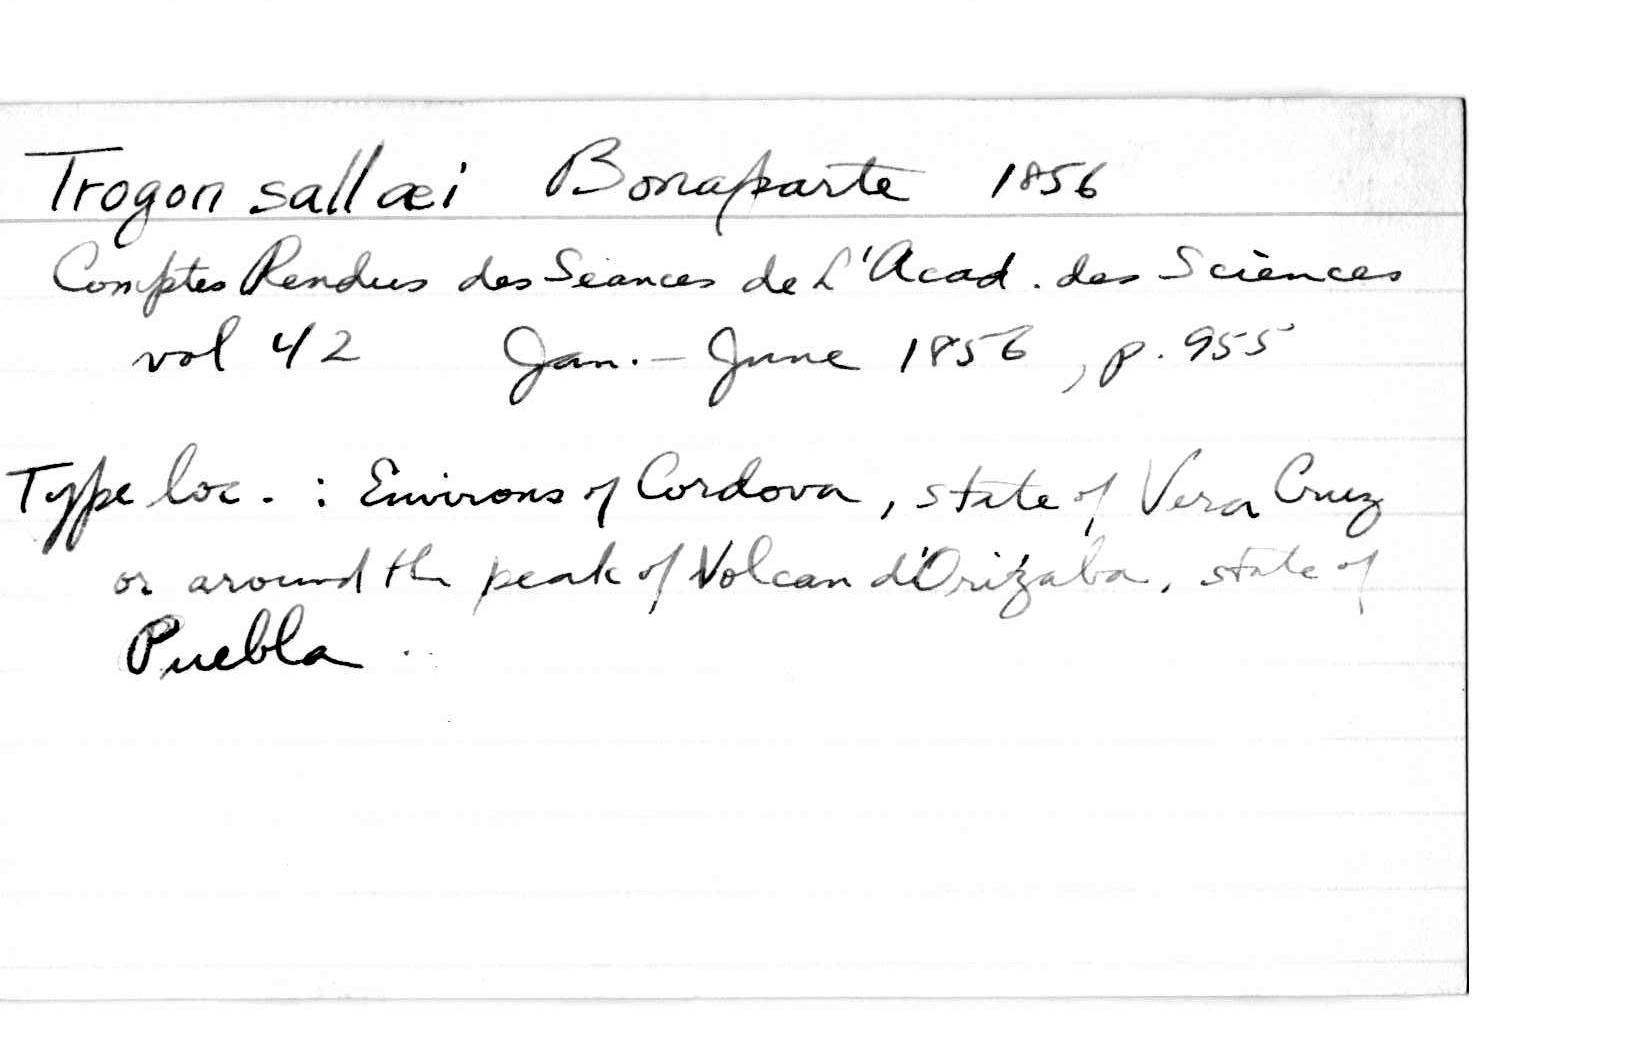 Trogon sallæi Bonaparte 1856
Comptes Rendus des Séances de L'Acad. des Sciences
vol 42 Jan. - June 1856, p. 955
Type loc. : Environs of Cordova, state of Vera Cruz
or around the peak of Volcan d'Orizaba, state of
Puebla.